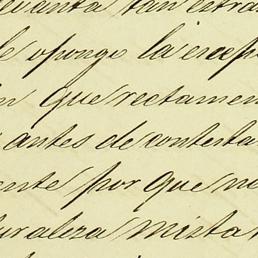 levanta tan estra
le oponge la excep
en que rectamen
antes de contesta
ente por que ne
turaleza mista